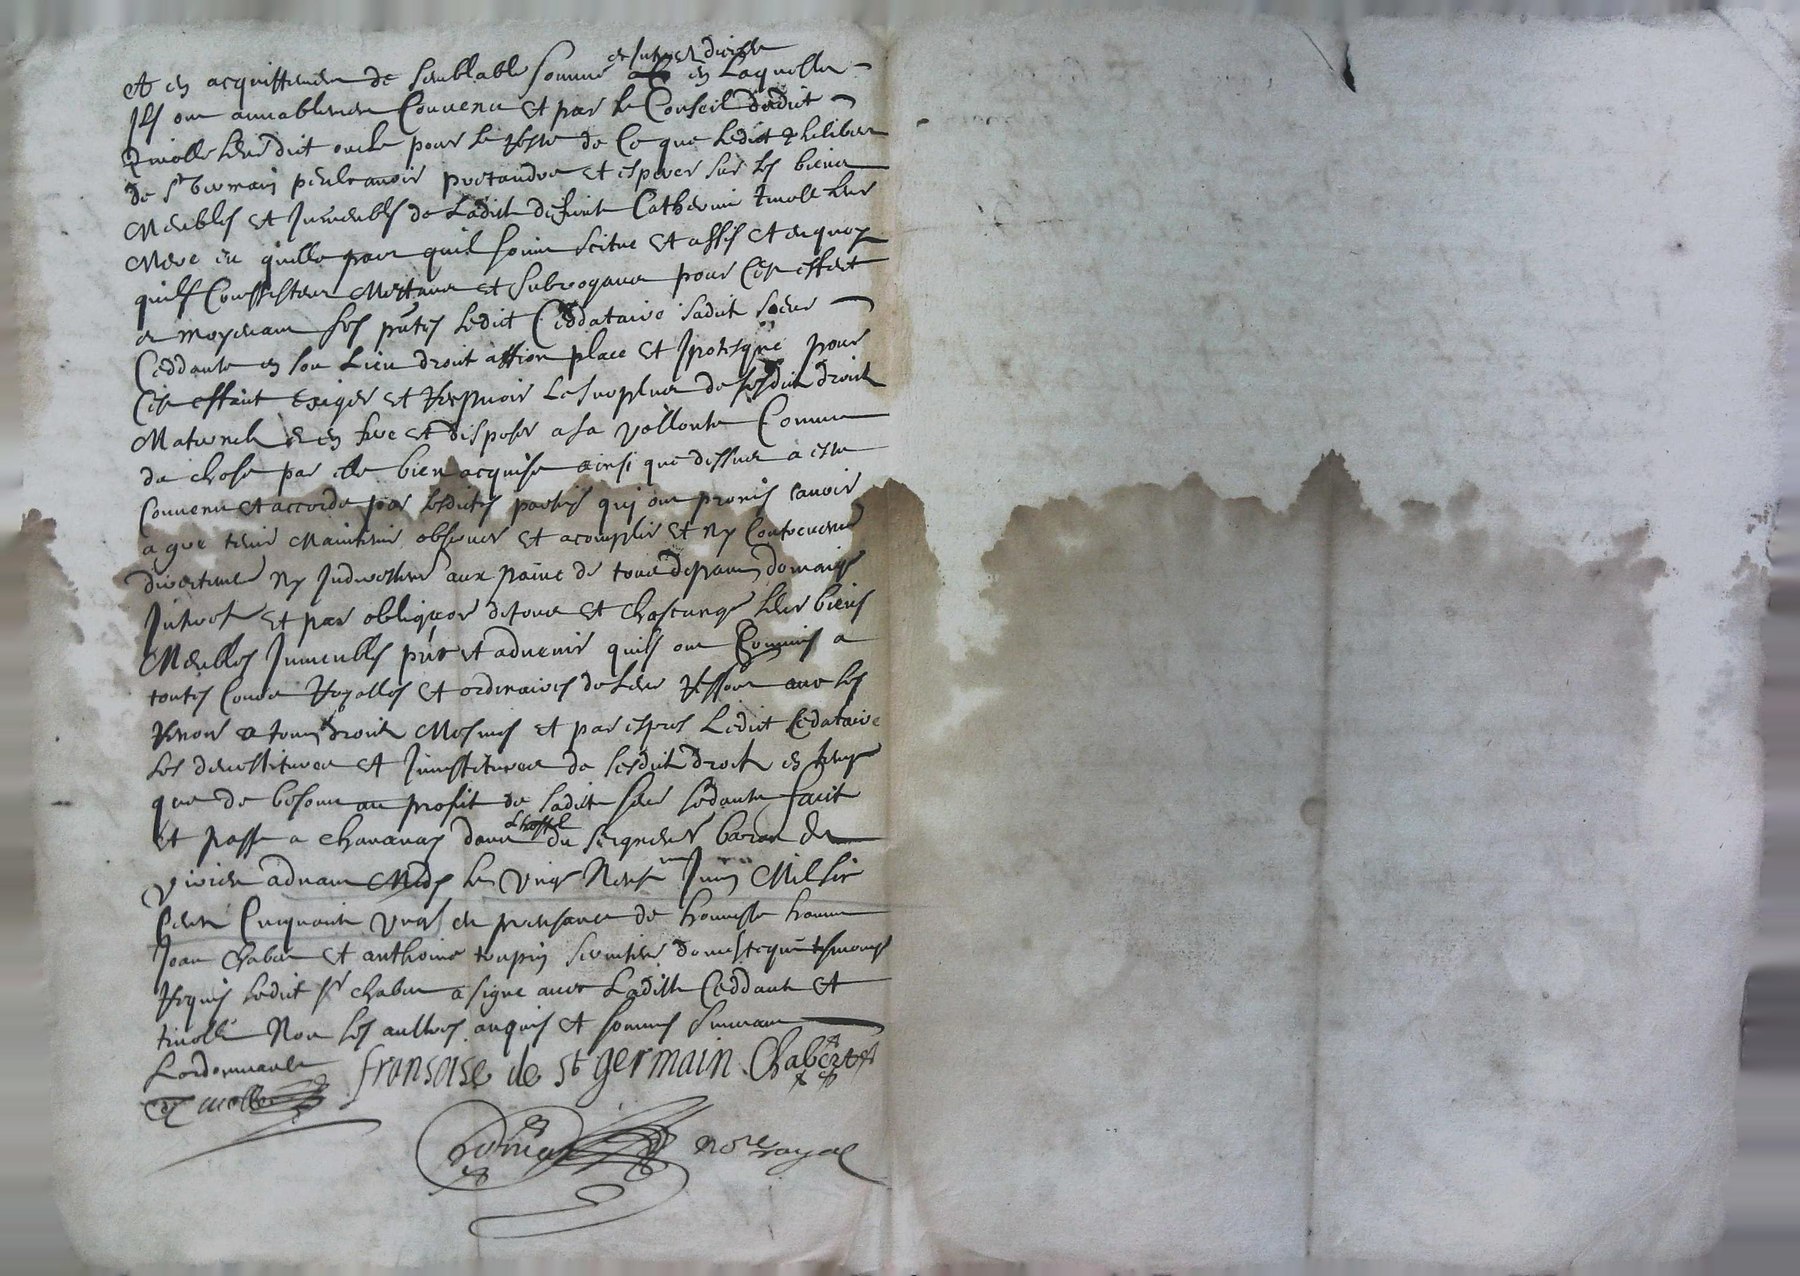 et en acquittement de semblable somme en laquelle
Ilz ont amiablement Convenu et par le Conseil dudict
Tivolle leur dict oncle pour le reste de Ce que ledict
de St Germain peult avoir pretandre et esperer sur les biens
Meubles et Immeubles de ladicte defunte Catherine Tivolle leur
Mere en quelle part quil soint scitue et assis et en quoy
quilz Conssistent Mettant et subrogant pour Cest effect
et moyenant les pntes ledict Ceddataire sadicte sœur
Ceddante en son Lieu droit action place et Ipoteque pour
Cest effaict exiger et recepvoir le surplus de sesdicts droicts
Maternels et en fere et disposer a sa vollonte Comme
de chose par elle bien acquise ainsi que dessus a este
Convenu et accorde par lesdictes parties qui ont promis avoir
a gre tenir Maintenir observer et acomplir et ny Contrevenir
directement ny Indirectement aux paine de tous despans domaiges
Interest et par obligaon de tous et chascungs leurs biens
Meubles Immeubles pnts et advenir quilz ont soumis a
toutes Cours Royalles et ordinaires de leur ressort avec les
renon a tous droicts Mesmes et par espres Ledict Cedataire
les devestiture et Investiture de sesdicts droicts en tempz
que de besoin au profit de ladicte sœur Cedante faict
et passe a chavanay dans
lhostel
du seigneur baron de
virieu advant Midy le vingt Neuf Juin Mil six
Cents Cinquante vng en presance de honneste homme
Jean Chabert et anthoine toupin serviteur domestique tesmoings
requis ledict sr chabert a signe avec Ladicte Ceddante et
tivolle Non les aultres enquis et sommes suivant
Lordonnance
fransoise de st germain Chabert
not royal